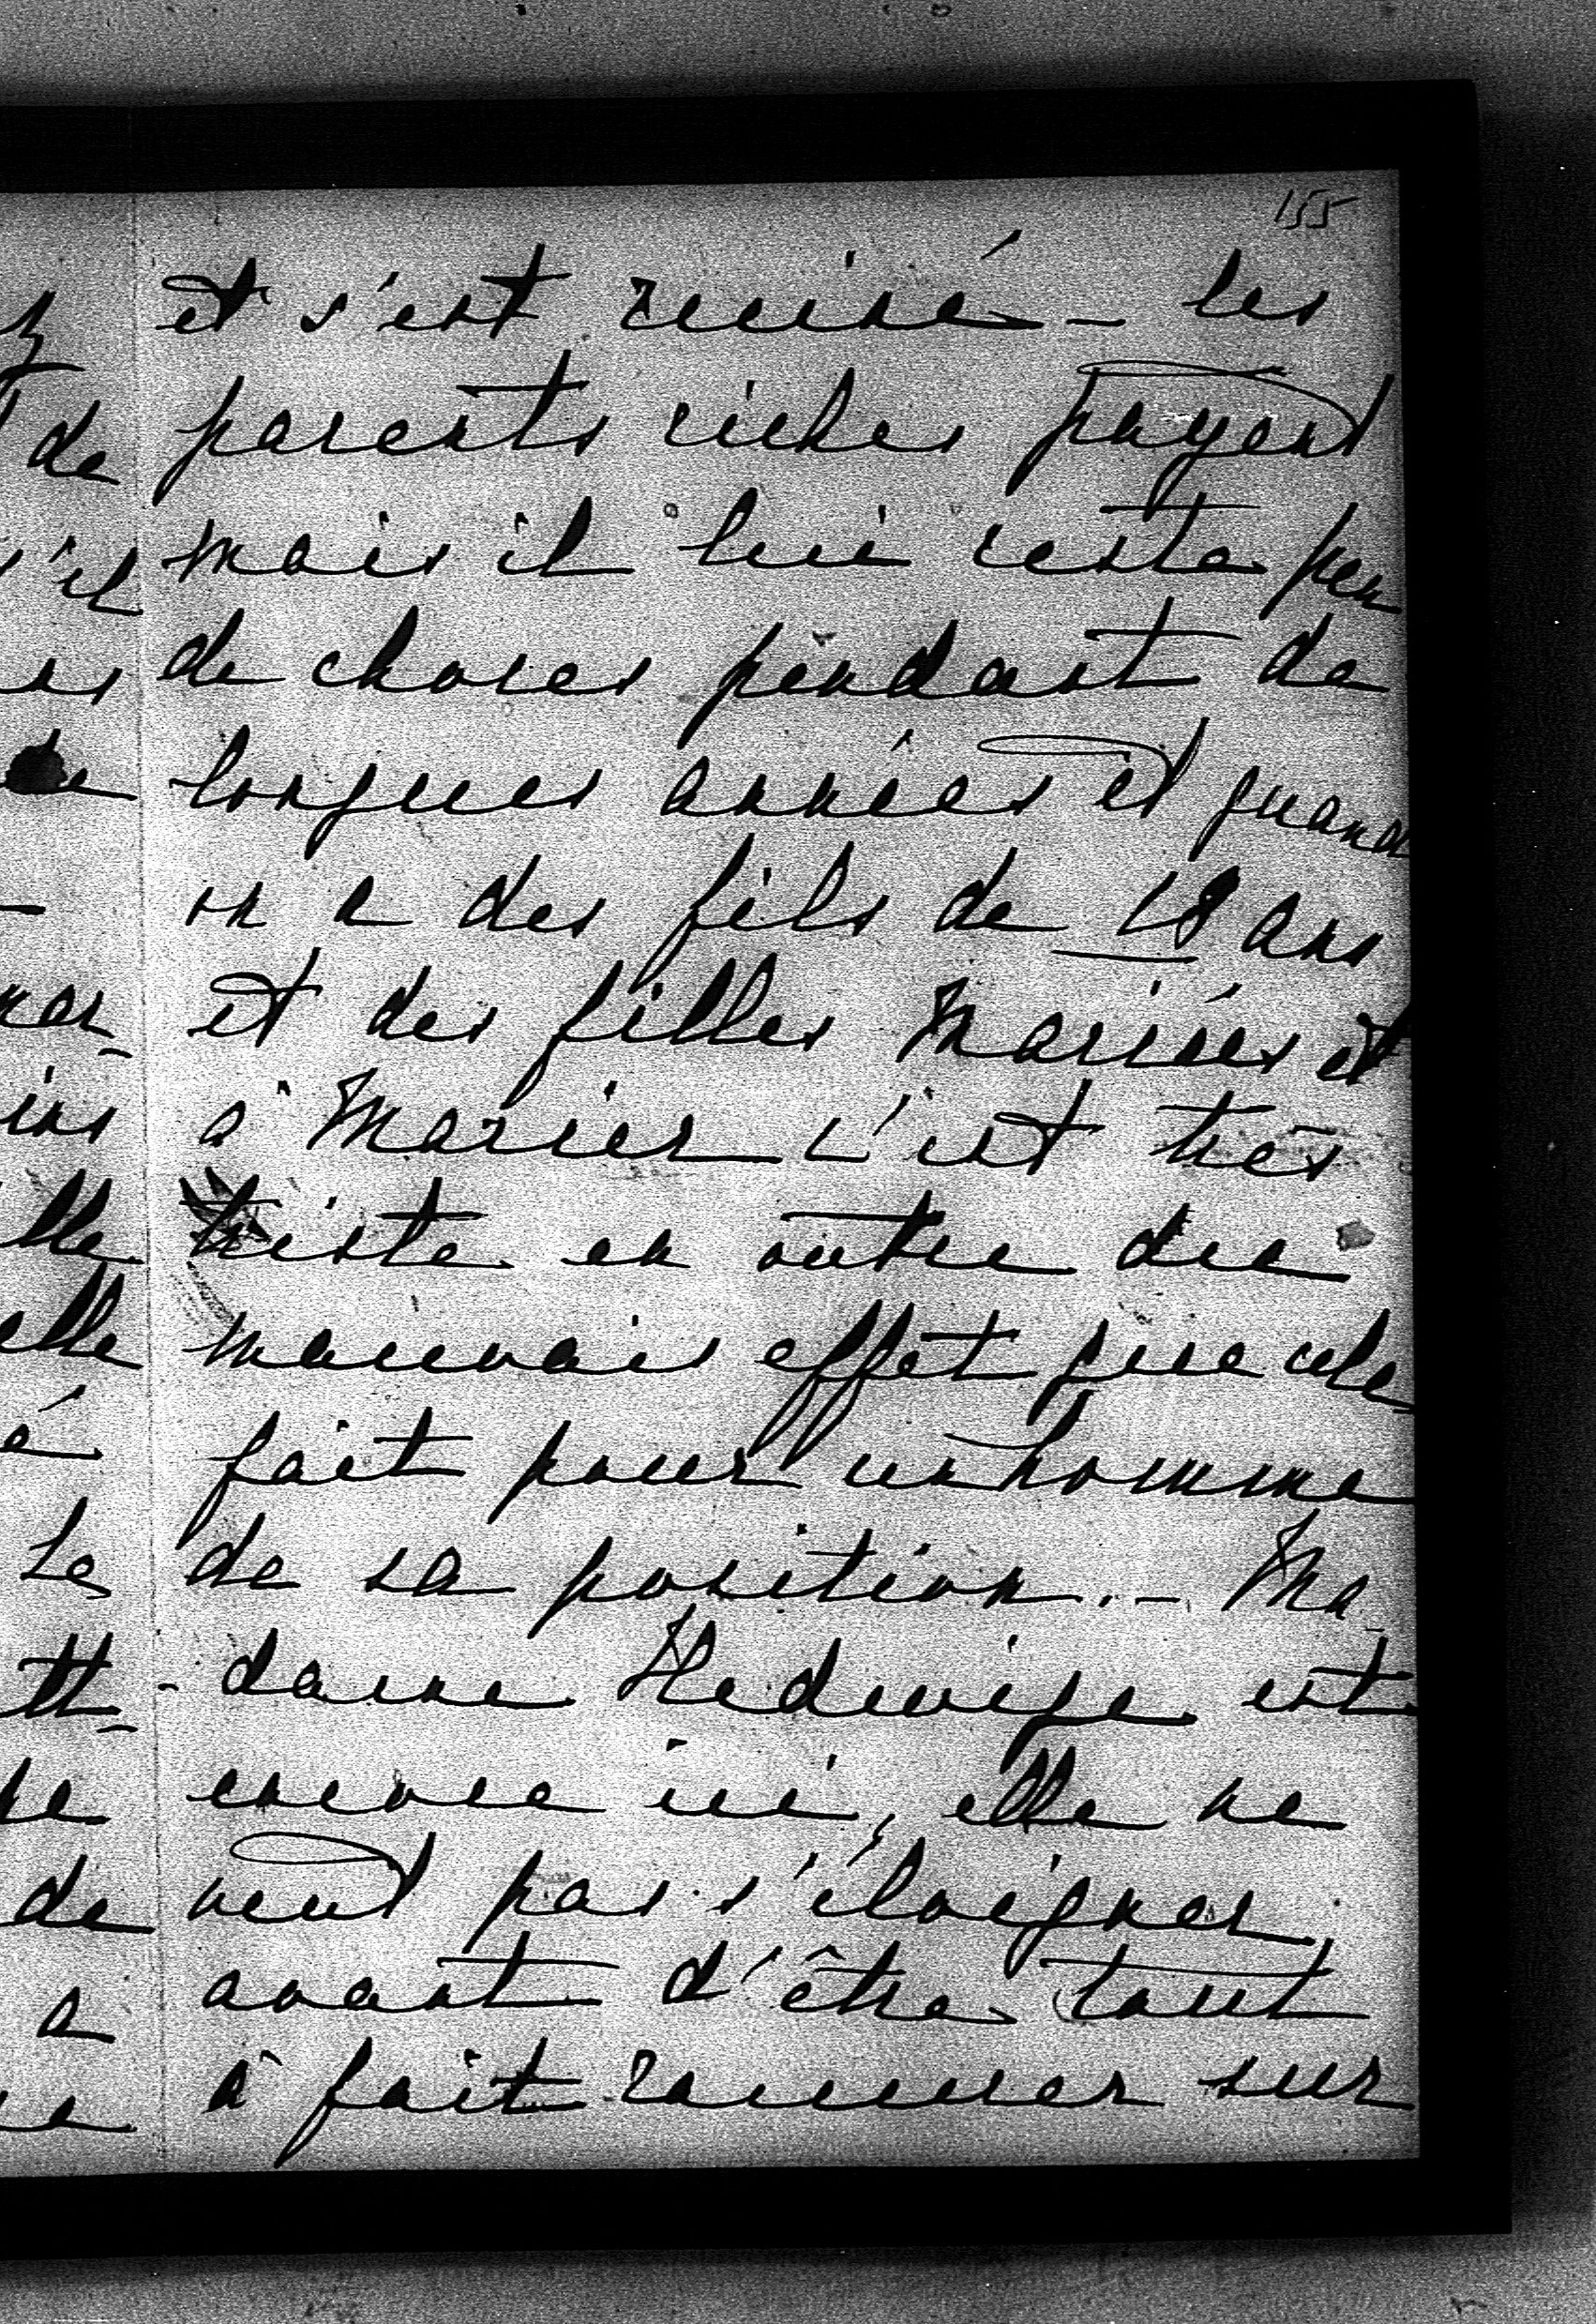 155
et s'est ruiné – les
parents riches payent
mais il lui reste peu
de choses pendant de
longues années et quand
on a des fils de 18 ans
et des filles mariées et
à marier c'est très
triste en outre du
mauvais effet que cela
fait pour un homme
de sa position. – Ma-
- dame Hedwige est
encore ici, elle ne
veut pas s'éloigner
avant d'être tout
à fait rassurer sur